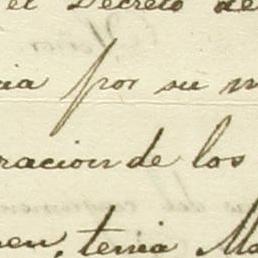 el Decreto de
cia por su m
racion de los
men, tenia Ma